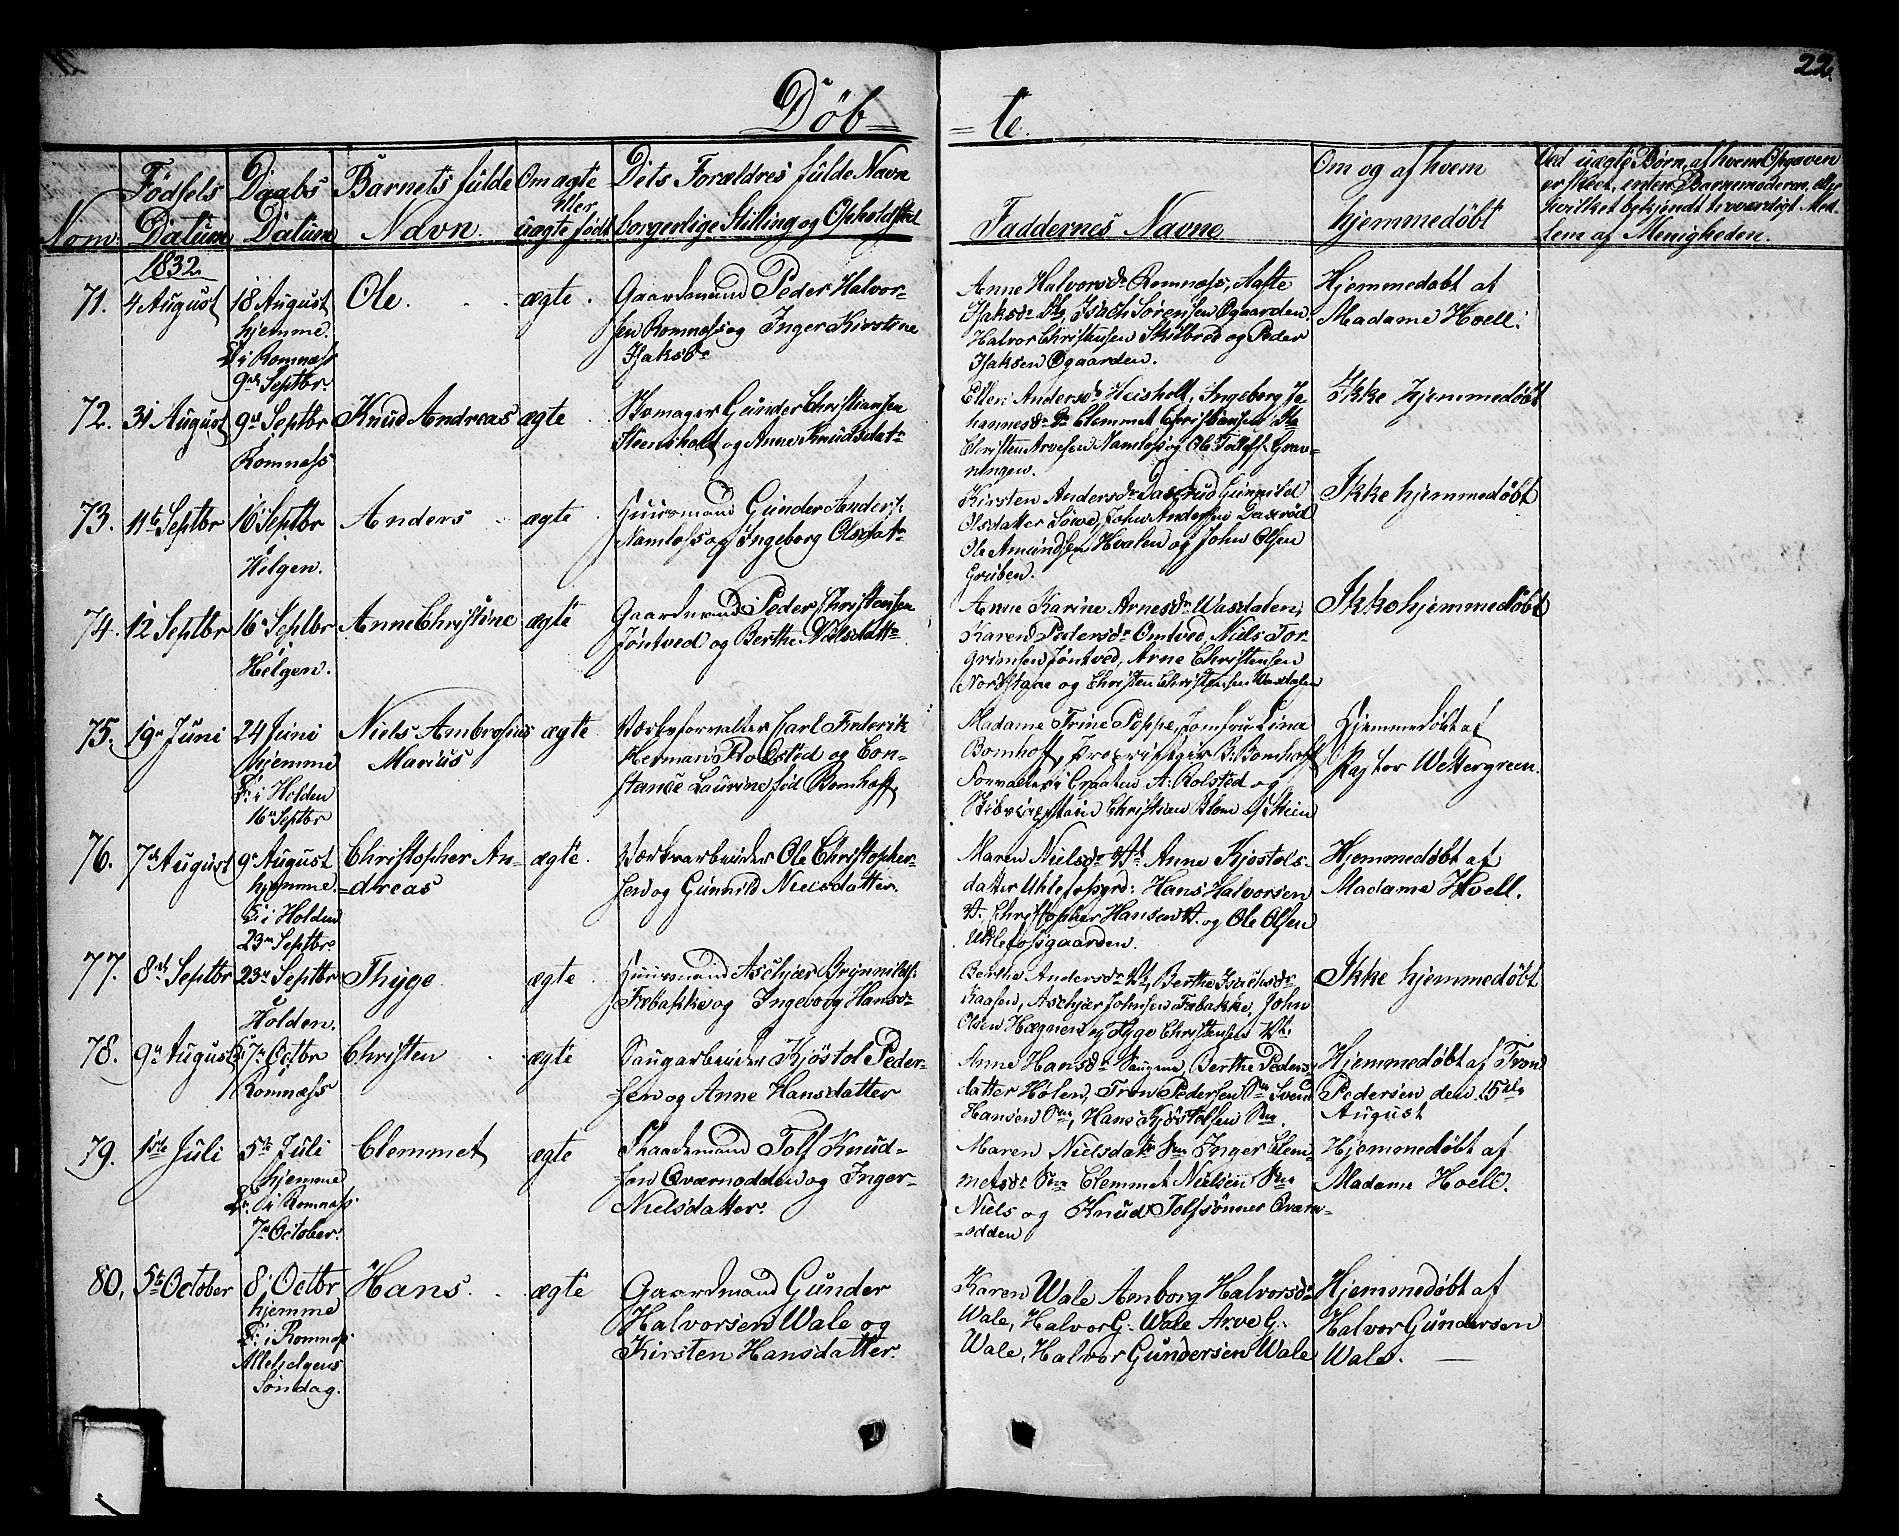 22.
Døb= =te.
Nom.
Fødsels Datum
Daabs Datum
Barnets fulde Navn
Om ægte eller uægte født
Dets Forældres fulde Navn
borgerlige Stilling og Opholdsted
Faddernes Navne
Om og af hvem hjemmedøbt
Ved uægte Børn, af hvem Opgaven
er skeet, enten Barnemoderen, eller
hvilket bekjendt troværdigt Med-
lem af Menigheden.
1832.
71. 4 August
18 August
hjemme.
i Romnæss
9de Septbr.
Ole.
ægte.
Gaardmand Peder Halvor-
sen Romnæss og Inger Kirstine
Isaksdr
Anne Halvorsdr Romnæss, Aaste
Isaksdr Isach Sørensen Øgaarden.
Halvor Christensen Skilbred og Peder
Isaksen Øgaarden.
Hjemmedøbt af
Madame Hoell.
72. 31 August
9de Septbr
Romnæss
Knud Andreas
ægte.
Skomager Gunder Christiansen
Steensholt og Anne Knudsdatr
Ellen Andersdr Heisholt, Ingeborg Jo-
hannesdr Clemmet Christiansen
Christen Arvesen Namløs og Ole Tollefs. Grav-
ningen.
Ikke hjemmedøbt
73. 11te Septbr
16 Septbr
Helgen.
Anders
ægte.
Huusmand Gunder Anders.
Namløs og Ingeborg Olsdatr
Kirsten Andersdr Gunnild
Olsdatter Søwe, John Andersen
Ole Amundsen Hvalen og John Olsen
Gruben.
Ikke hjemmedøbt
74. 12 Septbr
16 Septbr
Helgen.
Anne Christine
ægte
Gaardmand Peder Christensen
Jøntved og Berthe Nielsdattr
Anne Karine Arnesdr Wasdalen,
Karen Pedersdr Omtved, Niels Tor-
grimsen Jøntved, Arne Christensen
Nordstgae og Christen Christensen Wasdalen
Ikke hjemmedøbt
75. 19de Juni
24 Juni
hjemme
i Holden
16de Septbr
Niels Ambrosius
Marius
ægte.
Værksforvalter Carl Frederik
Herman Rolsted og Con-
stance Laurine fød Bomhoff,
Madame Trine Poppe, Jomfru Lina
Bomhoff, Proprietair B. Bomhoff
Forvalter i Graaten A. Rolsted og
Skibskaptain Christian Blom af Skien
Hjemmedøbt af
Pastor Wettergreen.
76. 7de August
9de August
hjemme.
i Holden
23de Septbr
Christopher An-
=dreas
ægte.
Værksarbeider Ole Christopher-
sen og Gunnild Nielsdatter.
Maren Nielsdr Anne Kjøstols-
datter Uhlefosgrd: Hans Halvorsen
Christopher Hansen og Ole Olsen
Uhlefosgaarden.
Hjemmedøbt af
Madame Hoell.
77. 8de Septbr
23de Septbr
Holden.
Thyge
ægte.
Huusmand Aschjær Brynnilds.
Fæbakke og Ingeborg Hansdr
Berthe Andersdr Berthe Isachsdr
Kaasen, Aschjær Johnsen Fæbakke, John
Olsen Hægnen og Tyge Christensen
Ikke hjemmedøbt
78. 9de August
7de Octbr
Romnæss
Christen
ægte
Saugarbeider Kjøstol Peder-
sen og Anne Hansdatter
Anne Hansdr Saugene, Berthe Peders-
datter Holen, Tron Pedersen Svend
Hansen Hans Kjøstolsen
Hjemmedøbt af Tron
Pedersen den 15de
August
79. 1ste Juli
5te Juli
hjemme
i Romnæss
7de October.
Clemmet
ægte
Skaademand Tolf Knud-
sen Qværnodden og Inger
Nielsdatter.
Maren Nielsdatr Inger Clem-
metsdr Clemmet Nielsen
Niels og Knud Tolfsønner Qværn-
=odden
Hjemmedøbt af
Madame Hoell.
80. 5te October
8 Octbr
hjemme
i Romnæss
Allehelgens
Søndag.
Hans.
ægte
Gaardmand Gunder
Halvorsen Wale og
Kirsten Hansdatter.
Karen Wale Amborg Halvorsdr
Wale, Halvor G. Wale Arve G.
Wale, Halvor Gundersen Wale
Hjemmedøbt af
Halvor Gundersen
Wale.